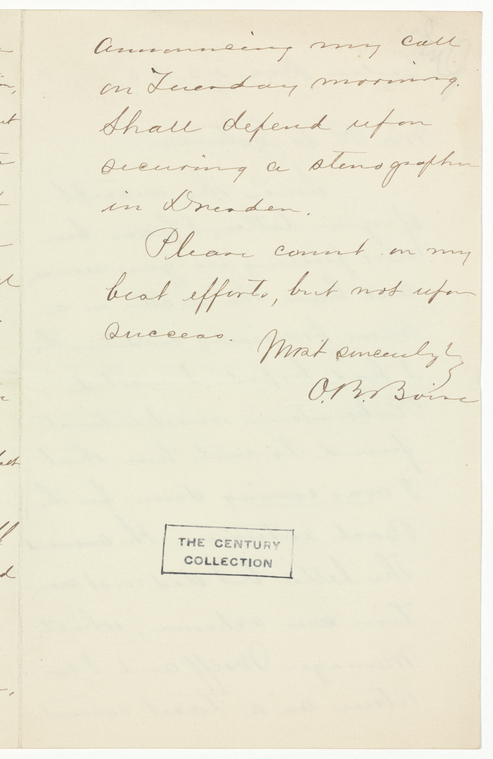 announcing my call
on Tuesday morning.
Shall depend upon
securing a stenographer
in Dresden.
Please count on my
best efforts, but not upon
success.
Most sincerely
O. B. Boise
THE CENTURY
COLLECTION